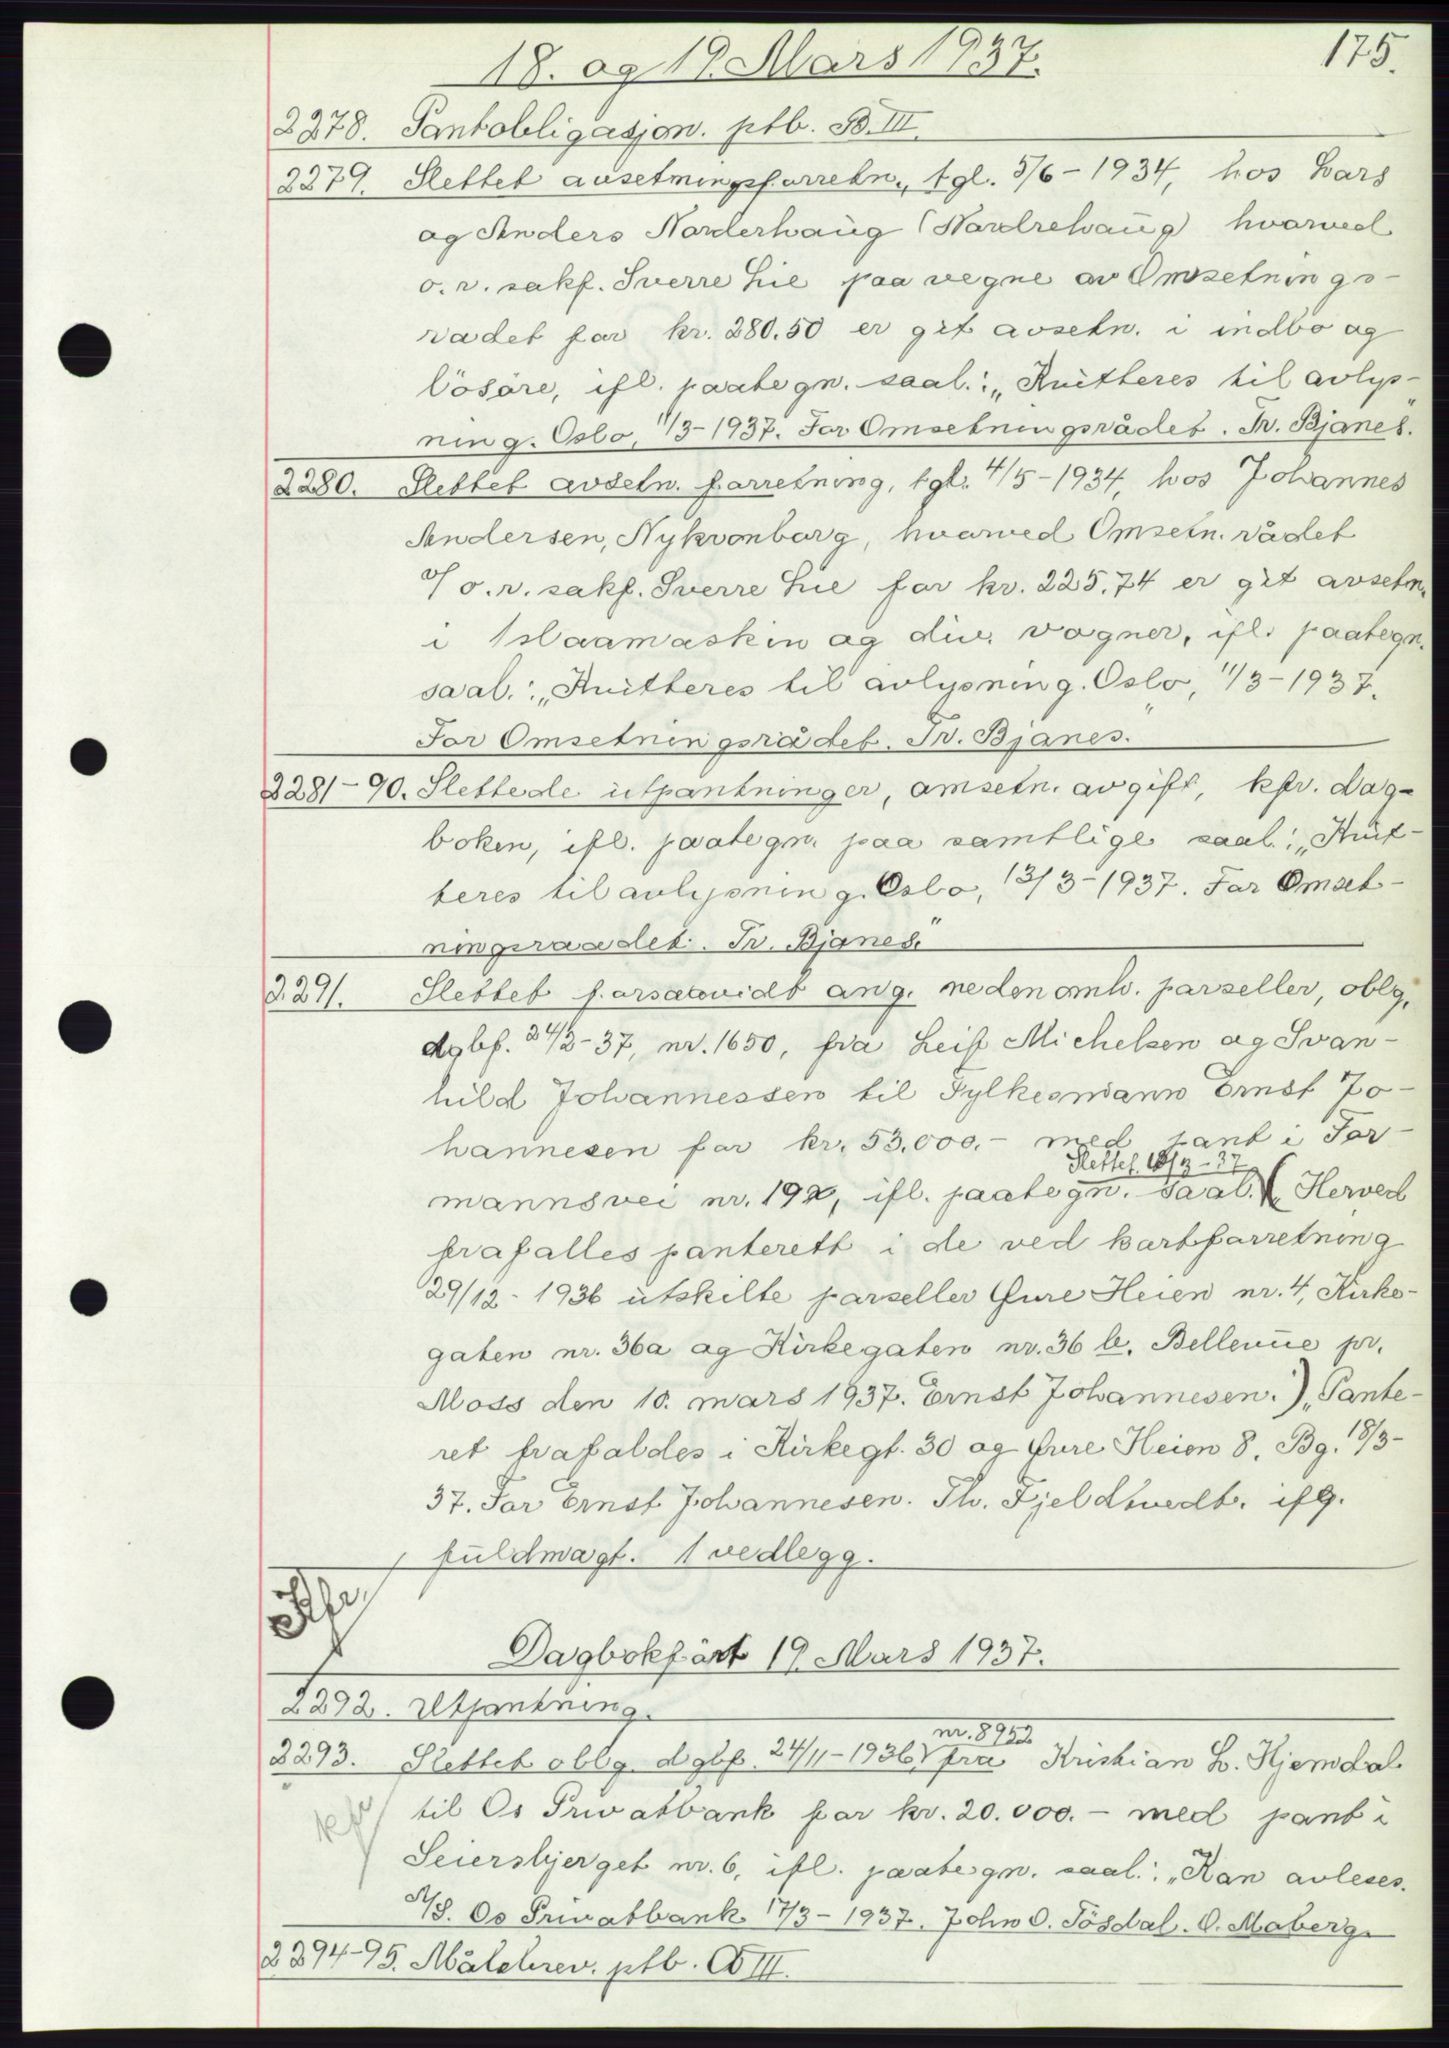 18. og 19. Mars 1937.
175.
2278. Pantobligasjon. ptb. B. III.
2279. Slettet avsetningsforretn., tgl. 5/6 - 1934, hos Lars
og Anders Norderhaug (Nordrehaug) hvorved
o. r. sakf. Sverre Lie paa vegne av Omsetnings-
radet for kr. 280.50 er git avsetn. i indbo og
lösöre, ifl. paategn. saal.: „Kvitteres til avlys-
ning. Oslo, 11/3 - 1937. For Omsetningsrådet. Tr. Bjanes."
2280. Slettet avsetn. forretning, tgl. 4/5 - 1934, hos Johannes
Andersen, Nykronborg, hvorved Omsetn. rådet
v/ o. r. sakf. Sverre Lie for kr. 225.74 er git avsetn.
i 1 slaamaskin og div. vogner, ifl. paategn.
saal.: „Kvitteres til avlysning. Oslo, 11/3 - 1937.
For Omsetningsrådet. Tr. Bjanes."
2281 - 90. Slettede utpantninger, omsetn. avgift, kfr. dag-
boken, ifl. paategn. paa samtlige saal.: „Kvit-
teres til avlysning. Oslo, 13/3 - 1937. For Omset-
ningsraadet. Tr. Bjanes."
2291. Slettet forsaavidt ang. nedenomh. parseller, oblg.
dgbf. 24/2 - 37, nr. 1650, fra Leif Michelsen og Svan-
hild Johannessen til Fylkesmann Ernst Jo-
hannesen for kr. 53.000.- med pant i For-
Slettet 18/3 - 37
mannsvei nr. 19, ifl. paategn. saal. ( „Herved
frafalles panterett i de ved kartforretning
29/12 - 1936 utskilte parseller Øvre Heien nr. 4, Kirke-
gaten nr. 36a og Kirkegaten nr. 36 b. Bellevue pr.
Moss den 10. mars 1937. Ernst Johannesen.") „Pante-
ret frafaldes i Kirkegt. 30 og Øvre Heien 8. Bg. 18/3 -
37. For Ernst Johannesen. Th. Fjeldtvedt. ifg.
fuldmagt. 1 vedlegg.
Kfr.
Dagbokført 19. Mars 1937.
2292. Utpantning.
nr. 8952
2293. Slettet oblg. dgbf. 24/11 - 1936 fra Kristian L. Hjemdal
kfr
til Os Privatbank for kr. 20.000.- med pant i
Seiersbjerget nr. 6, ifl. paategn. saal.: „Kan avleses.
A/S. Os Privatbank 17/3 - 1937. John O. Tösdal. O. Moberg.
2294-95. Målebrev. ptb. B III.